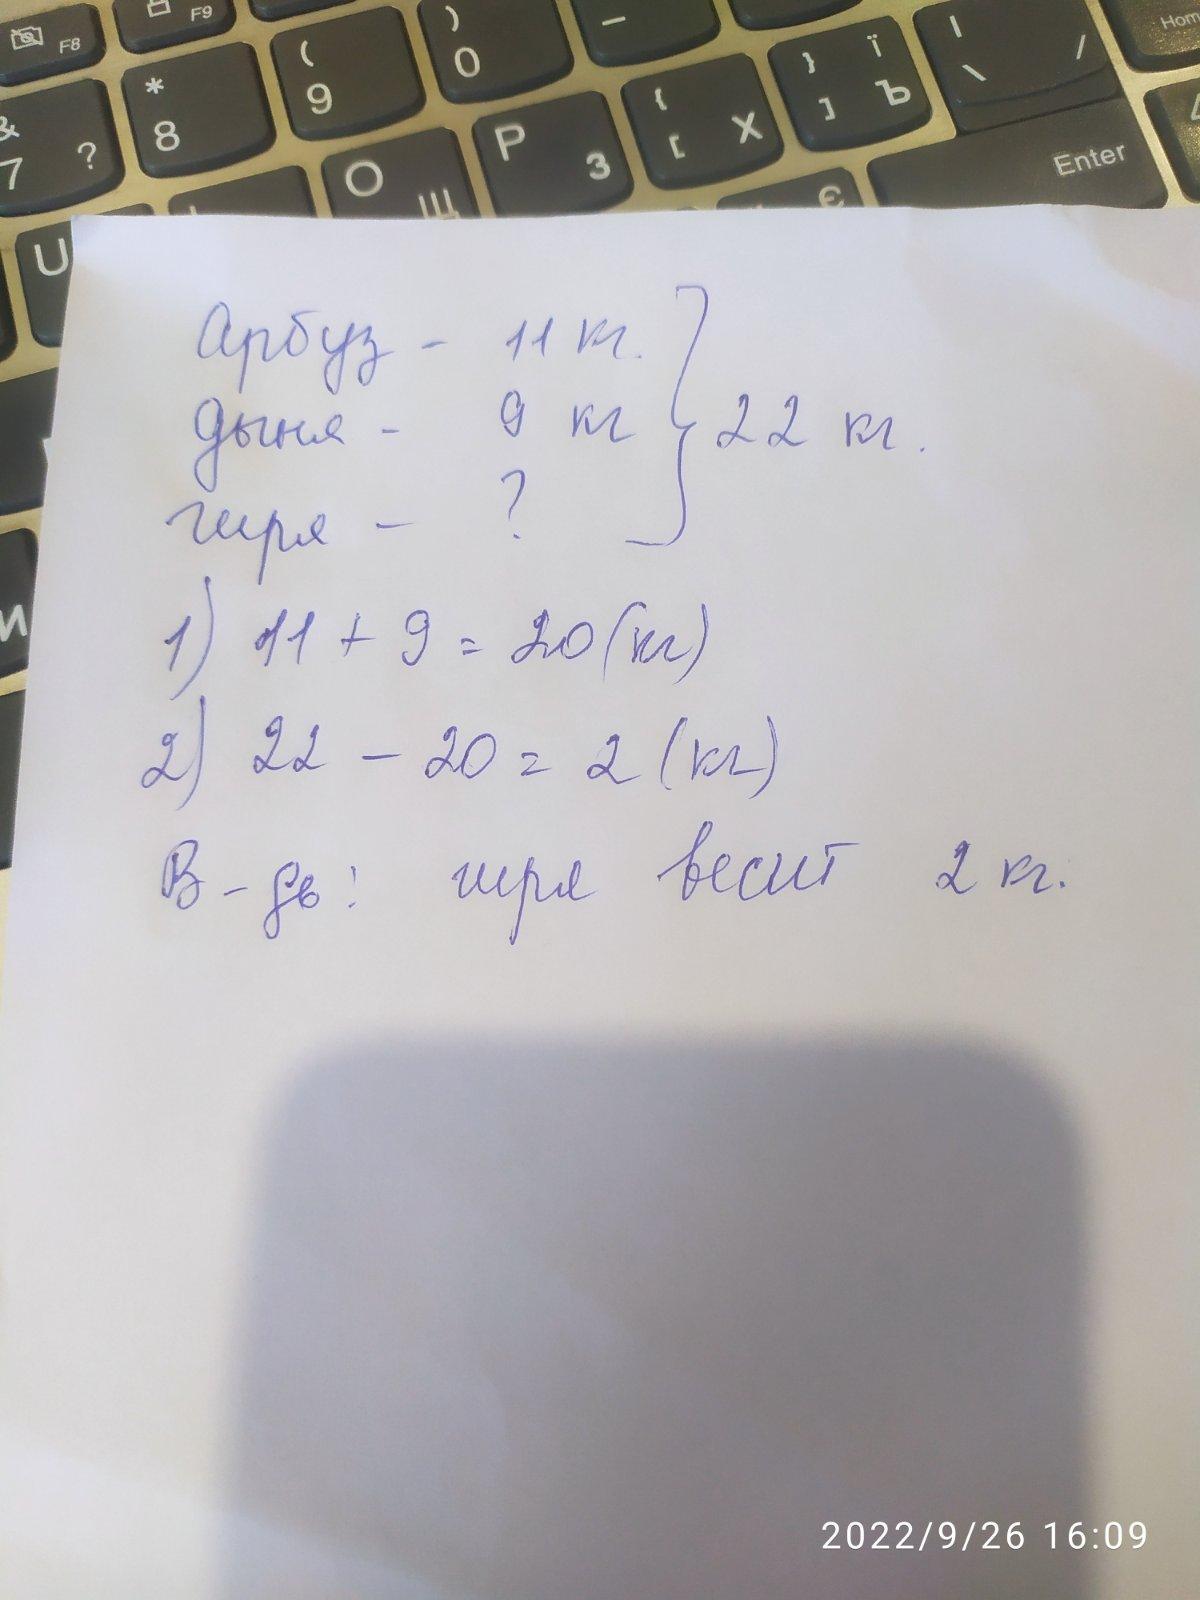 F8
F9
( ) _
* 9 0 { } ї | Home
& 8 P [ Х ] Ъ \ /
7 ? О Щ З Enter
U Є
Арбуз - 11 кг.
дыня - 9 кг } 22 кг.
гиря - ?
И
1) 11 + 9 = 20 (кг)
2) 22 - 20 = 2 (кг)
В-дь: гиря весит 2 кг.
2022/9/26 16:09